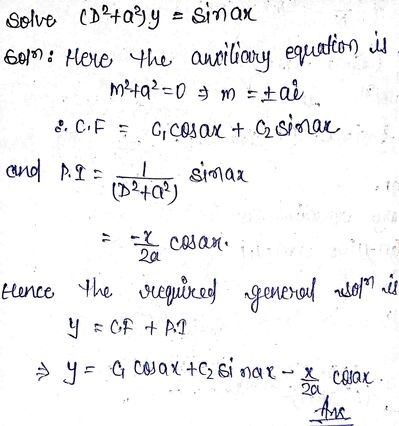 Solve (D²+a²)y = Sinax
Solⁿ: Here the auxiliary equation is
m²+a²=0 ⇒ m = ±ai
∴ C.F = C₁cosax + C₂sinax
and P.I = 1/(D²+a²) sinax
= -x/2a cosax.
Hence the required general solⁿ is
y = C.F + P.I
⇒ y = C₁ cosax + C₂ sinax - x/2a cosax.
Ans